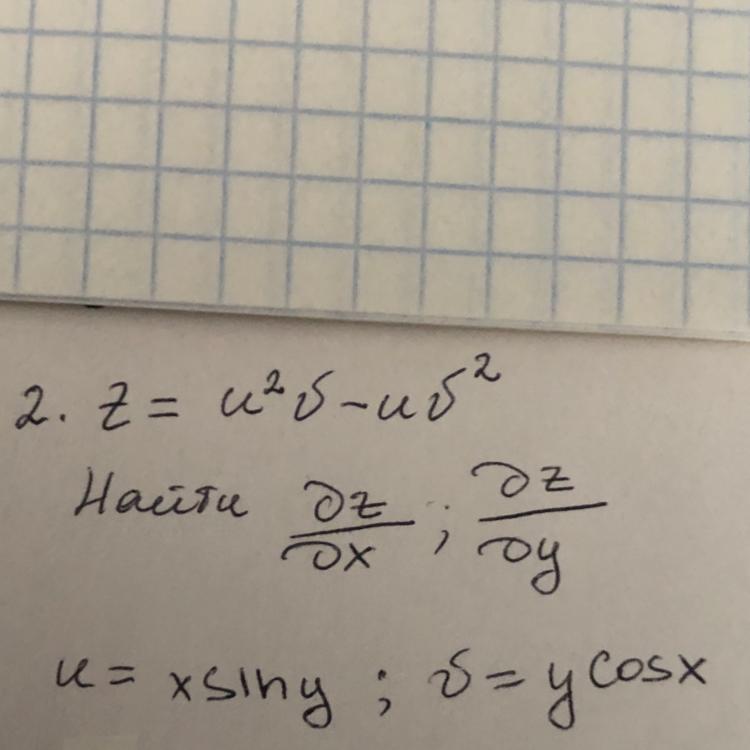 2. z = u²v - uv²
Найти ∂z/∂x ; ∂z/∂y
u = x sin y ; v = y cos x